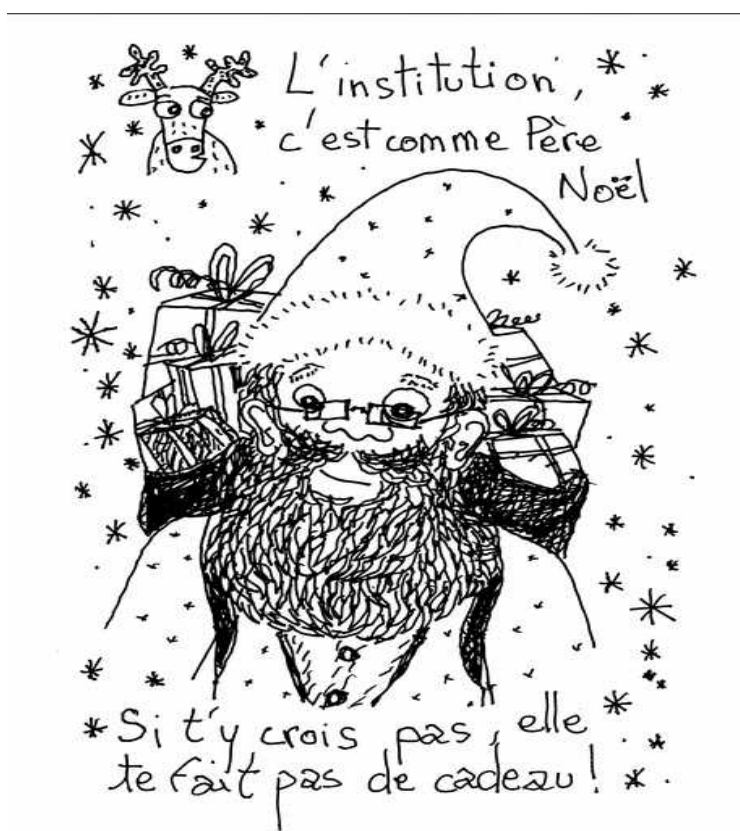 L'institution,
c'est comme Père
Noël
Si t'y crois pas, elle
te fait pas de cadeau !